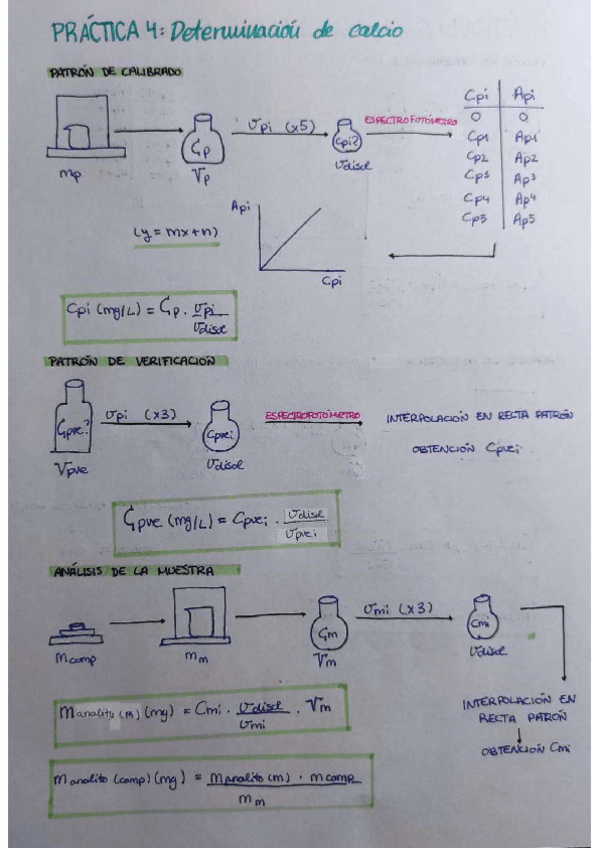 PRÁCTICA 4: Determinación de calcio
PATRÓN DE CALIBRADO
mp
Cp
Vp
Vpi (x5)
Cpi?
Vdisol
ESPECTROFOTÓMETRO
Cpi Api
0 0
Cp1 Ap1
Cp2 Ap2
Cp3 Ap3
Cp4 Ap4
Cp5 Ap5
(y = mx+n)
Api
Cpi
Cpi (mg/L) = Cp · Vpi / Vdisol
PATRÓN DE VERIFICACIÓN
Cpve?
Vpve
Vpi (x3)
Cpvei
Vdisol
ESPECTROFOTÓMETRO
INTERPOLACIÓN EN RECTA PATRÓN
OBTENCIÓN Cpvei
Cpve (mg/L) = Cpvei · Vdisol / Vpvei
ANÁLISIS DE LA MUESTRA
mcomp
mm
Cm
Vm
Vmi (x3)
Cmi
Vdisol
INTERPOLACIÓN EN
RECTA PATRÓN
OBTENCIÓN Cmi
manalito (m) (mg) = Cmi · Vdisol / Vmi · Vm
manalito (comp) (mg) = manalito (m) · mcomp / mm